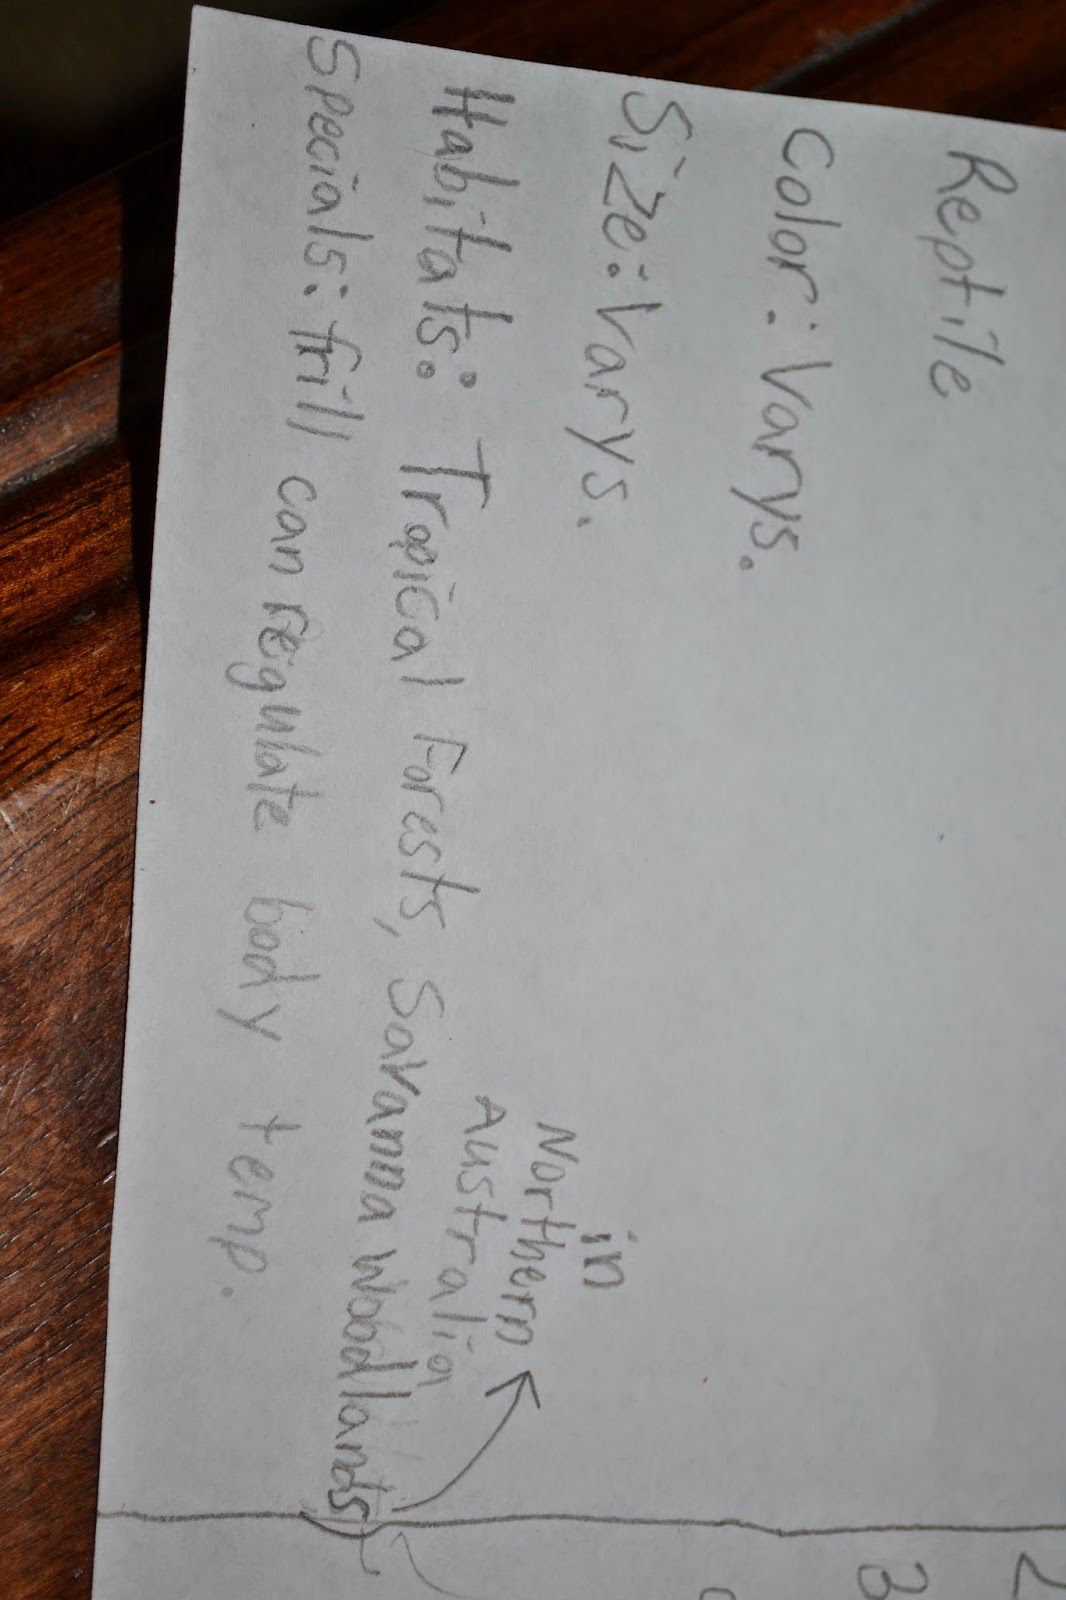 Reptile
Color: Varys.
Size: Varys.
in
Northern
Australia
Habitats: Tropical Forests, Savanna woodlands
Specials: frill can regulate body temp.
2
3